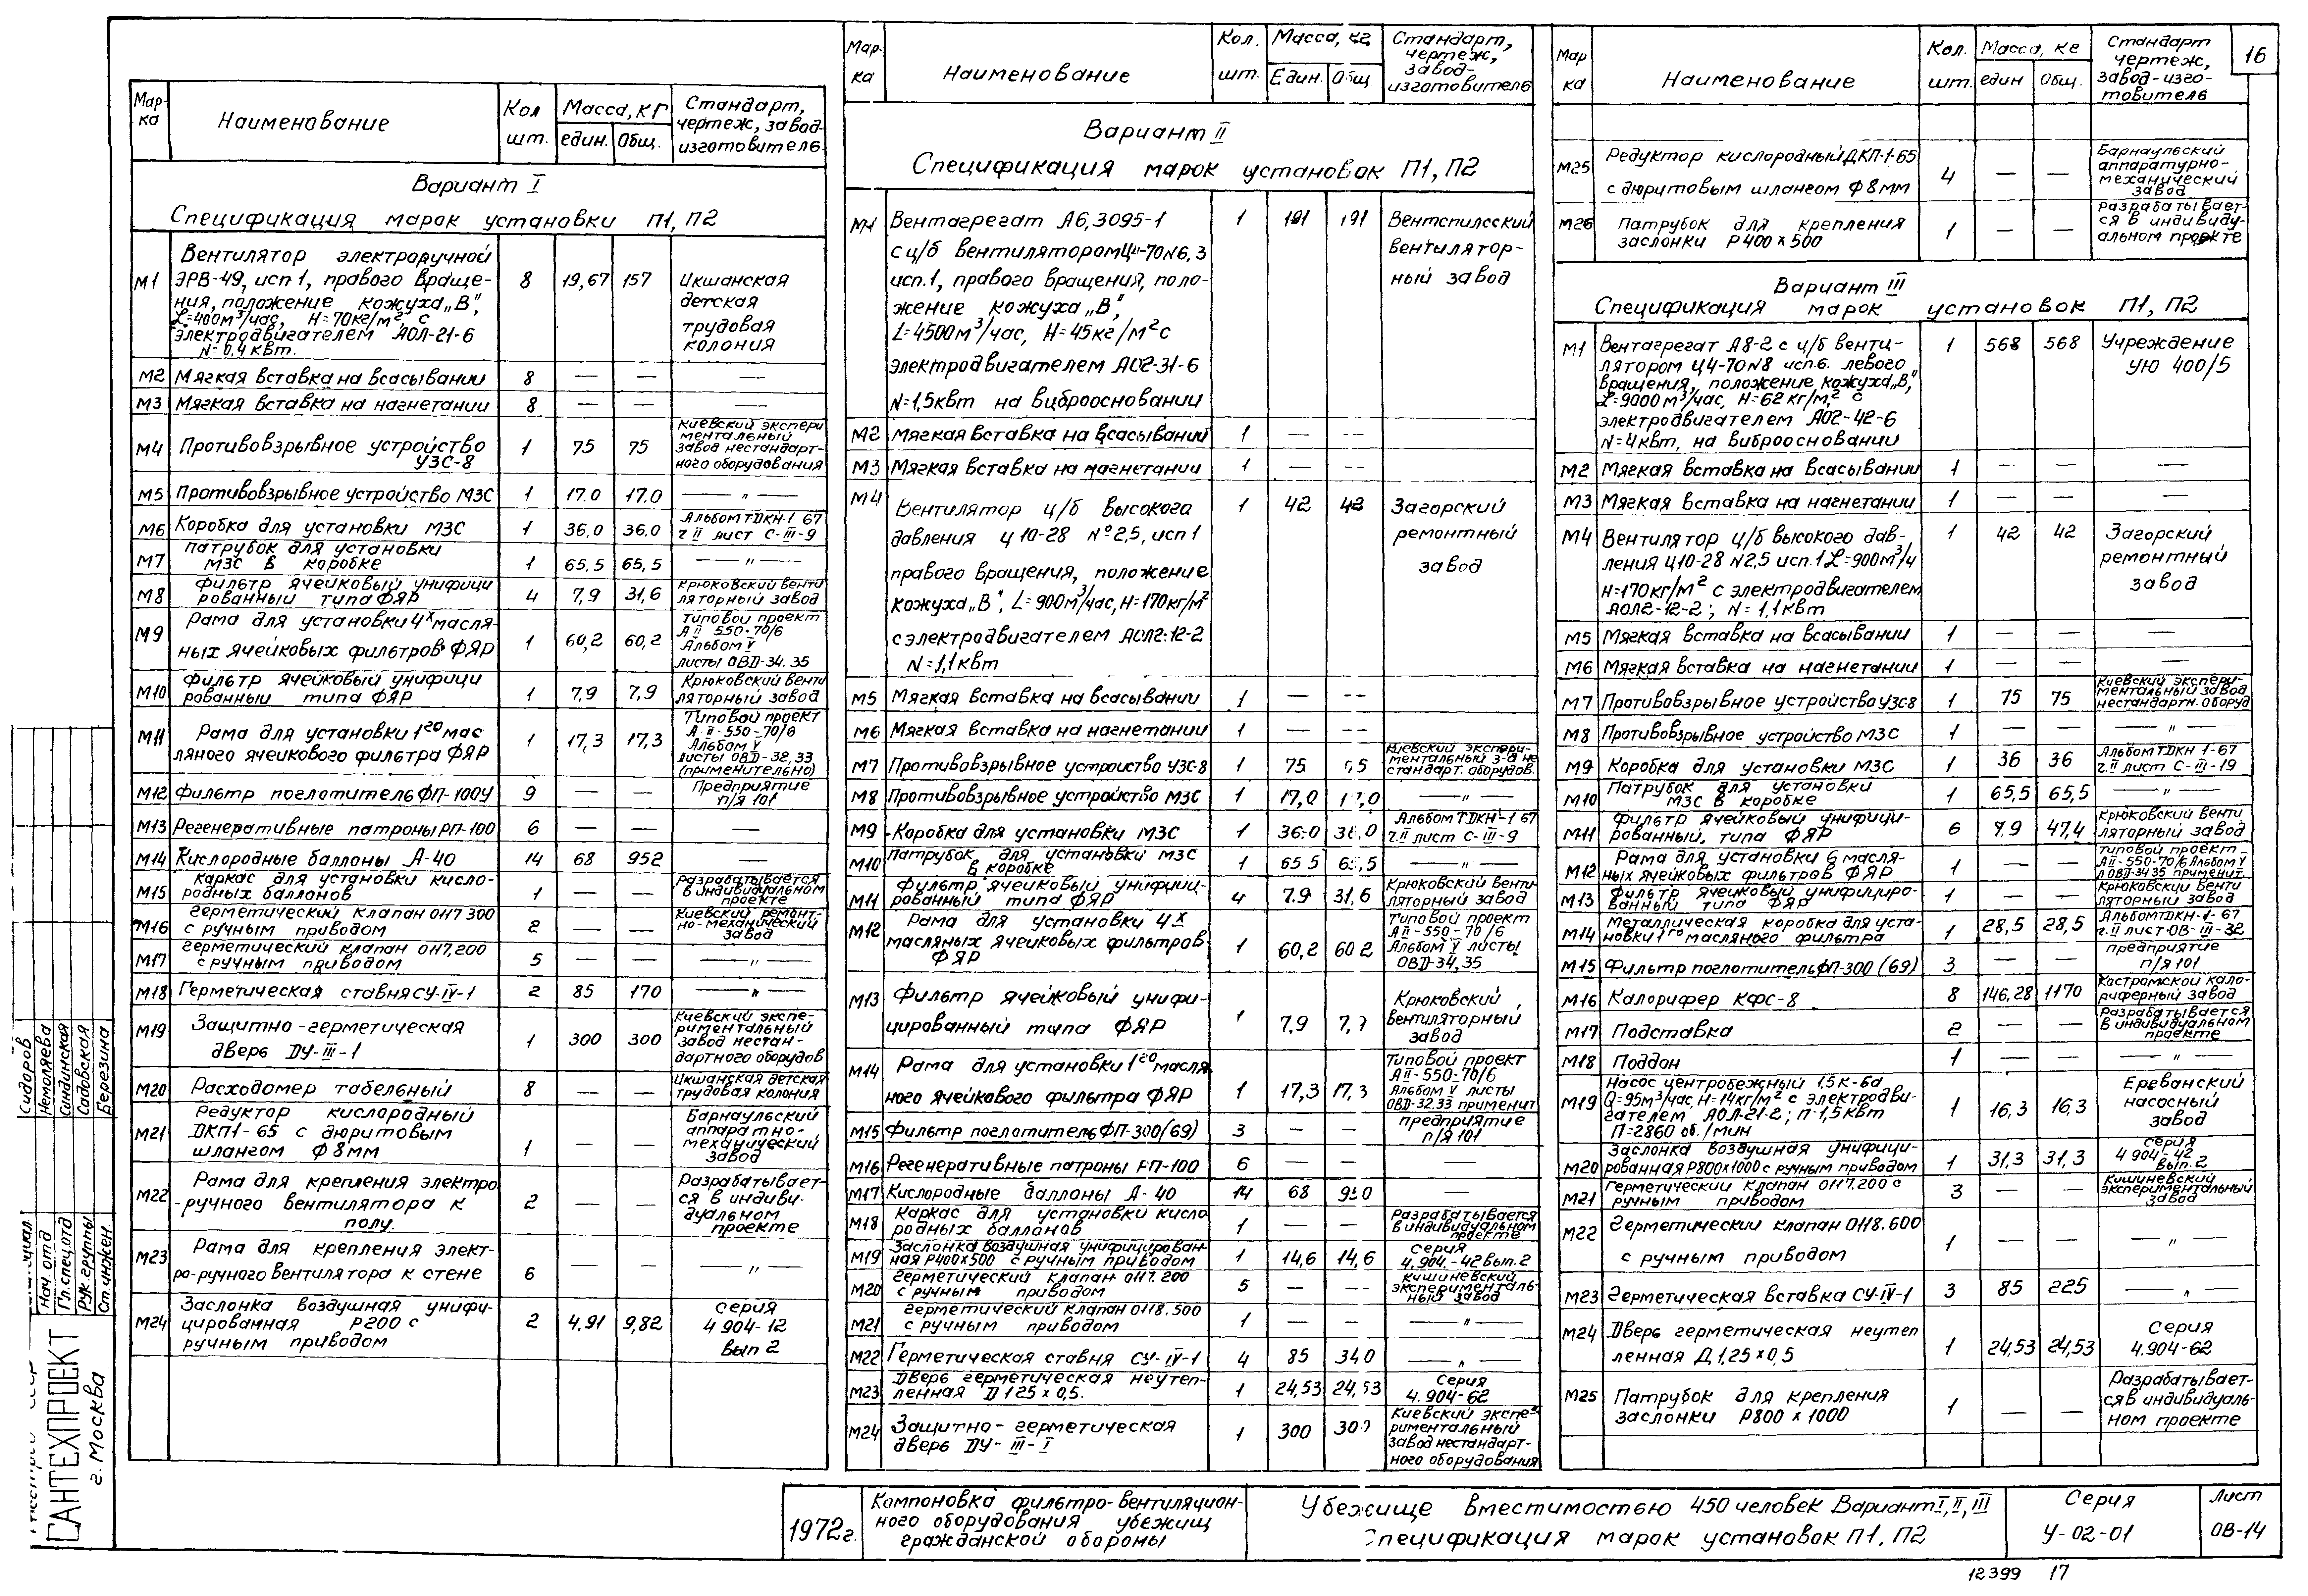 16
Мар-ка Наименование Кол шт. Масса, кг един. Общ. Стандарт, чертеж, завод-изготовитель
Вариант I
Спецификация марок установки П1, П2
М1 Вентилятор электроручной
ЭРВ-49, исп 1, правого враще-
ния, положение кожуха „В",
L=400м³/час, H=70кг/м², с
электродвигателем АОЛ-21-6
N=0,4 квт.
8 19,67 157
Икшанская
детская
трудовая
колония
М2 Мягкая вставка на всасывании 8 — — —
М3 Мягкая вставка на нагнетании 8 — — —
М4 Противовзрывное устройство
УЗС-8
1 75 75
Киевский экспери
ментальный
завод нестандарт-
ного оборудования
М5 Противовзрывное устройство МЗС 1 17.0 17.0 — " —
М6 Коробка для установки МЗС 1 36,0 36,0
Альбом ТДКН-1-67
ч II лист С-III-9
М7 Патрубок для установки
МЗС в коробке
1 65,5 65,5 — " —
М8 Фильтр ячейковый унифици
рованный типа ФЯР
4 7,9 31,6
Крюковский венти
ляторный завод
М9 Рама для установки 4х масля-
ных ячейковых фильтров ФЯР
1 60,2 60,2
Типовой проект
А II 550-70/6
Альбом V
листы ОВД-34. 35
М10 Фильтр ячейковый унифици
рованный типа ФЯР
1 7,9 7,9
Крюковский венти
ляторный завод
М11 Рама для установки 1го мас
ляного ячейкового фильтра ФЯР
1 17,3 17,3
Типовой проект
А-II-550-70/6
Альбом V
листы ОВД-32,33
(применительно)
М12 Фильтр поглотитель ФП-100У 9 — —
Предприятие
п/я 101
М13 Регенеративные патроны РП-100 6 — — —
М14 Кислородные баллоны А-40 14 68 952 —
М15 Каркас для установки кисло-
родных баллонов
1 — —
Разрабатывается
в индивидуальном
проекте
М16 Герметический клапан 0117 300
с ручным приводом
2 — —
Киевский ремонт-
но-механический
завод
М17 Герметический клапан 0117,200
с ручным приводом
5 — — — " —
М18 Герметическая ставня СУ-IV-1 2 85 170 — " —
М19 Защитно-герметическая
дверь ДУ-III-1
1 300 300
Киевский экспе-
риментальный
завод нестан-
дартного оборудов
М20 Расходомер табельный 8 — —
Икшанская детская
трудовая колония
М21 Редуктор кислородный
ДКП1-65 с дюритовым
шлангом Ф 8мм
1 — —
Барнаульский
аппаратно-
механический
завод
М22 Рама для крепления электро
-ручного вентилятора к
полу.
2 — —
Разрабатывает-
ся в индиви-
дуальном
проекте
М23 Рама для крепления элект-
ро-ручного вентилятора к стене
6 — — — " —
М24 Заслонка воздушная унифи-
цированная Р200 с
ручным приводом
2 4,91 9,82
Серия
4 904-12
вып 2
Мар-ка Наименование Кол. шт. Масса, кг Един. Общ Стандарт, чертеж, завод-изготовитель
Вариант II
Спецификация марок установок П1, П2
М1 Вентагрегат А6,3095-1
с ц/б вентилятором Ц4-70 N6,3
исп.1, правого вращения, поло-
жение кожуха „В",
L=4500м³/час, H=45кг/м² с
электродвигателем АО2-31-6
N=1,5квт на виброосновании
1 191 191
Вентспилсский
вентилятор-
ный завод
М2 Мягкая вставка на всасывании 1 — --
М3 Мягкая вставка на нагнетании 1 — --
М4 Вентилятор ц/б высокога
давления ц 10-28 №2,5, исп 1
правого вращения, положение
кожуха „В", L=900м³/час, H=170кг/м²
с электродвигателем АОЛ2-12-2
N=1,1квт
1 42 42
Загорский
ремонтный
завод
М5 Мягкая вставка на всасывании 1 — --
М6 Мягкая вставка на нагнетании 1 — --
М7 Противовзрывное устройство УЗС-8 1 75 75
Киевский экспери-
ментальный з-д не
стандарт. оборудов.
М8 Противовзрывное устройство МЗС 1 17,0 17,0 — " —
М9 Коробка для установки МЗС 1 36.0 36.0
Альбом ТДКН-1 67
ч.II лист С-III-9
М10 Патрубок для установки МЗС
в коробке
1 65 5 65,5 — " —
М11 Фильтр ячейковый унифици-
рованный типа ФЯР
4 7.9 31,6
Крюковский венти-
ляторный завод
М12 Рама для установки 4х
масляных ячейковых фильтров
ФЯР
1 60,2 60 2
Типовой проект
А II-550-70/6
Альбом V листы
ОВД-34,35
М13 Фильтр ячейковый унифи-
цированный типа ФЯР
1 7,9 7,9
Крюковский
вентиляторный
завод
М14 Рама для установки 1го масля
ного ячейкового фильтра ФЯР
1 17,3 17,3
Типовой проект
А II-550-70/6
Альбом V листы
ОВД-32.33 применит
М15 Фильтр поглотитель ФП-300(69) 3 — —
предприятие
п/я 101
М16 Регенеративные патроны РП-100 6 — — —
М17 Кислородные баллоны А-40 14 68 950 —
М18 Каркас для установки кисло
родных баллонов
1 — —
Разрабатывается
в индивидуальном
проекте
М19 Заслонка воздушная унифицирован-
ная Р400х500 с ручным приводом
1 14,6 14,6
Серия
4.904.-42 вып. 2
М20 Герметический клапан 0117. 200
с ручным приводом
5 — --
Кишиневский
эксперименталь-
ный завод
М21 Герметический клапан 0118.500
с ручным приводом
1 — — — " —
М22 Герметическая ставня СУ-IV-1 4 85 340 — " —
М23 Дверь герметическая неутеп-
ленная Д 125 х 0,5.
1 24,53 24,53
Серия
4.904-62
М24 Защитно-герметическая
дверь ДУ-III-I
1 300 300
Киевский экспе-
риментальный
завод нестандарт-
ного оборудования
Мар ка Наименование Кол. шт. Масса, ке един Общ. Стандарт чертеж, завод-изго-товитель
М25 Редуктор кислородный ДКП-1-65
с дюритовым шлангом Ф 8мм
4 — —
Барнаульский
аппаратурно-
механический
завод
М26 Патрубок для крепления
заслонки Р400х500
1 — —
Разрабатывает-
ся в индивиду-
альном проекте
Вариант III
Спецификация марок установок П1, П2
М1 Вентагрегат А8-2 с ц/б венти-
лятором Ц4-70 N8 исп.6. левого
вращения, положение кожуха „В",
L=9000м³/час, H=62кг/м², с
электродвигателем АО2-42-6
N=4квт, на виброосновании
1 568 568
Учреждение
УЮ 400/5
М2 Мягкая вставка на всасывании 1 — — —
М3 Мягкая вставка на нагнетании 1 — — —
М4 Вентилятор ц/б высокого дав-
ления ц10-28 N2,5 исп.1 L=900м³/ч
H=170кг/м² с электродвигателем
АОЛ2-12-2; N=1,1квт
1 42 42
Загорский
ремонтный
завод
М5 Мягкая вставка на всасывании 1 — — —
М6 Мягкая вставка на нагнетании 1 — — —
М7 Противовзрывное устройство УЗС-8 1 75 75
Киевский экспери-
ментальный завод
нестандартн. оборуд
М8 Противовзрывное устройство МЗС 1 — — — " —
М9 Коробка для установки МЗС 1 36 36
Альбом ТДКН 1-67
ч.II лист С-III-19
М10 Патрубок для установки
МЗС в коробке
1 65,5 65,5 — " —
М11 Фильтр ячейковый унифици-
рованный, типа ФЯР
6 7.9 47,4
Крюковский венти
ляторный завод
М12 Рама для установки 6 масля-
ных ячейковых фильтров ФЯР
1 — —
Типовой проект
А II-550-70/6 Альбом V
л ОВД-34 35 применит.
М13 Фильтр ячейковый унифициро-
ванный типа ФЯР
1 — —
Крюковский венти
ляторный завод
М14 Металлическая коробка для уста-
новки 1го масляного фильтра
1 28,5 28,5
Альбом ТДКН-1-67
ч.II лист ОВ-III-32
М15 Фильтр поглотитель ФП-300 (69) 3 — —
предприятие
п/я 101
М16 Калорифер КФС-8 8 146,28 1170
Костромской кало-
риферный завод
М17 Подставка 2 — —
Разрабатывается
в индивидуальном
проекте
М18 Поддон 1 — — — " —
М19 Насос центробежный 1,5К-6а
Q=95м³/час, H=14кг/м² с электродви-
гателем АОЛ-21-2; п-1,5квт
П=2860 об./мин
1 16,3 16,3
Ереванский
насосный
завод
М20 Заслонка воздушная унифици-
рованная Р800х1000 с ручным приводом
1 31,3 31,3
серия
4 904-42
вып. 2
М21 Герметический клапан 0117.200 с
ручным приводом
3 — —
Кишиневский
экспериментальный
завод
М22 Герметический клапан 0118.600
с ручным приводом
1 — — — " —
М23 Герметическая вставка СУ-IV-1 3 85 225 — " —
М24 Дверь герметическая неутеп
ленная Д 1,25 х 0,5
1 24,53 24,53
Серия
4.904-62
М25 Патрубок для крепления
заслонки Р800 х 1000
1 — —
Разрабатывает-
ся в индивидуаль-
ном проекте
Сидоров
Немоляева
Синдинская
Садовская
Березина
Нач. отд
Гл. спец.отд
Рук. группы
Ст. инжен.
САНТЕХПРОЕКТ
г. Москва
1972г.
Компоновка фильтро-вентиляцион-
ного оборудования убежищ
гражданской обороны
Убежище вместимостью 450 человек Вариант I, II, III
Спецификация марок установок П1, П2
Серия
У-02-01
Лист
ОВ-14
12399 17